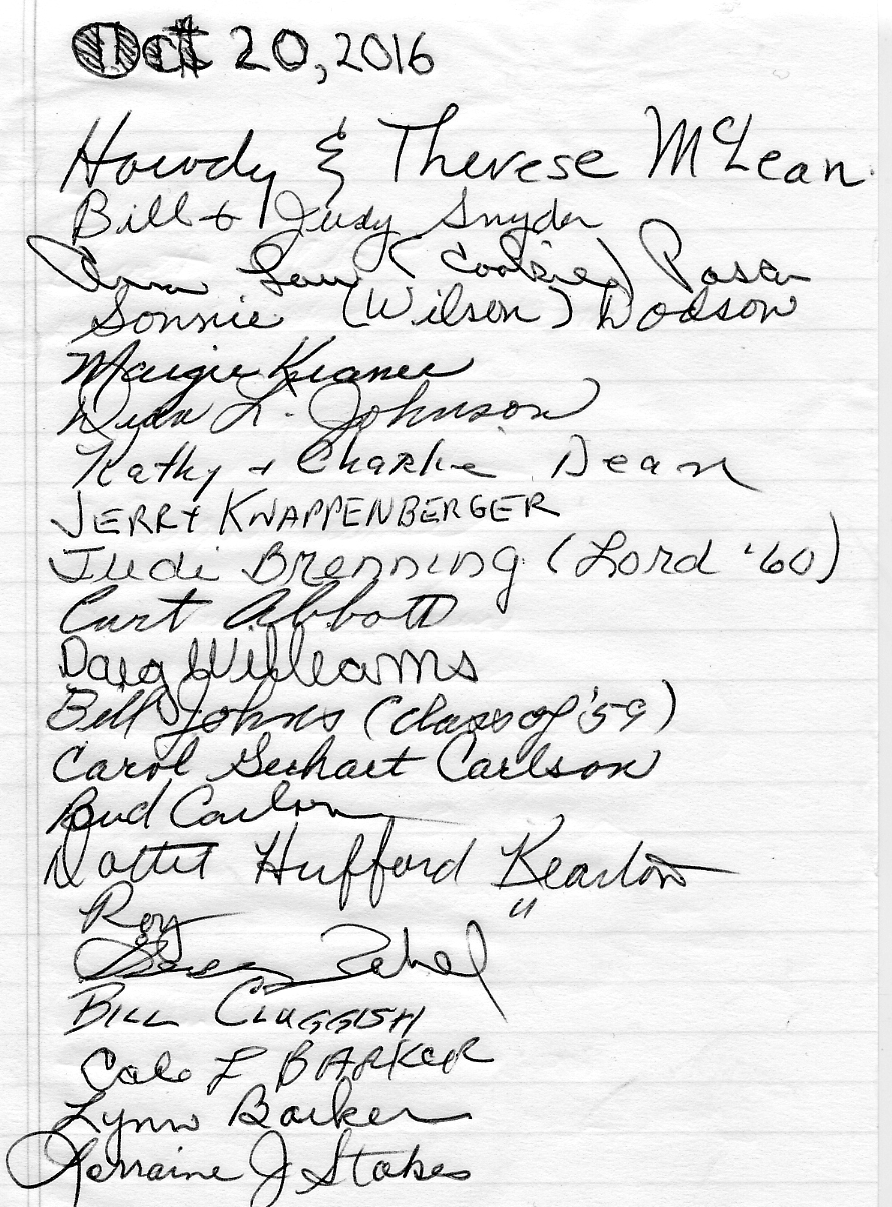 Oct 20, 2016
Howdy & Therese McLean
Bill & Judy Snyder
Anna Lou (Cookie)
Sonnie (Wilson) Dodson
Margie
L. Johnson
Kathy + Charlie Dean
JERRY KNAPPENBERGER
Judi Brenning (Lord '60)
Curt Abbott
Williams
Bill Johns (class of '59)
Carol Carlson
Bud Carlson
Hufford
Roy "
BILL CLUGGISH
L BARKER
Lynn Barker
Lorraine J Stokes